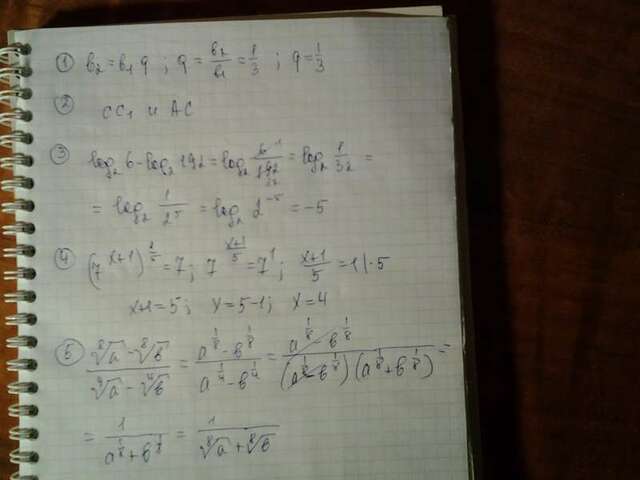 ① b₂ = b₁ q ; q = b₂/b₁ = 1/3 ; q = 1/3
② CC₁ и AC
③ log₂ 6 - log₂ 192 = log₂ 6/192 = log₂ 1/32 =
= log₂ 1/2⁵ = log₂ 2⁻⁵ = -5
④ (7^(x+1))^(1/5) = 7 ; 7^((x+1)/5) = 7¹ ; (x+1)/5 = 1 |·5
x+1 = 5 ; x = 5-1 ; x = 4
⑤ (⁸√a - ⁸√b)/(⁴√a - ⁴√b) = (a^(1/8) - b^(1/8))/(a^(1/4) - b^(1/4)) = (a^(1/8) - b^(1/8))/((a^(1/8) - b^(1/8))(a^(1/8) + b^(1/8))) =
= 1/(a^(1/8) + b^(1/8)) = 1/(⁸√a + ⁸√b)